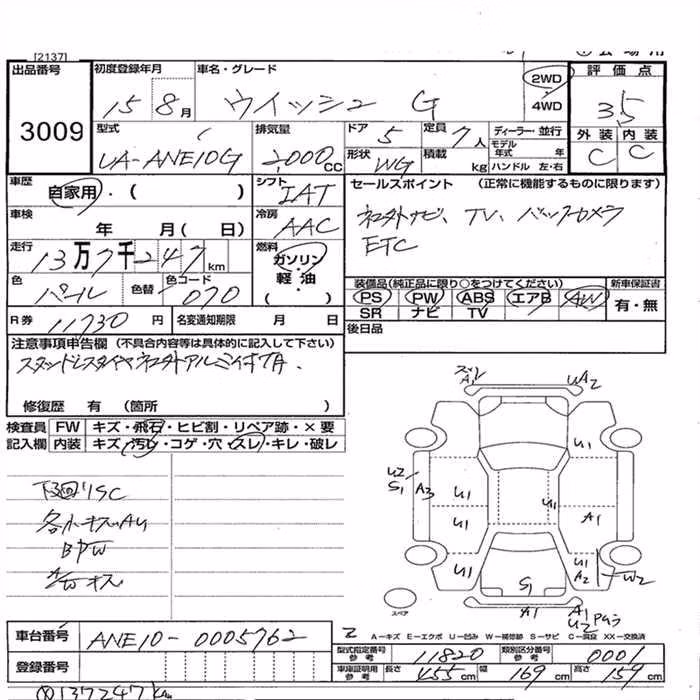 [2137]
出品番号 3009
初度登録年月 15 8月
車名・グレード ウイッシュ G
2WD ・ 4WD
評価点 3.5
外装 C 内装 C
型式 UA-ANE10G
排気量 2000cc
ドア 5
定員 7人
形状 WG
積載 kg
ディーラー・並行
モデル年式 年
ハンドル 左・右
車歴 自家用・( )
シフト IAT
車検 年 月( 日)
冷房 AAC
走行 13万7千247km
燃料 ガソリン・軽油
色 パール 色替 色コード 070
R券 11730円
名変通知期限 月 日
セールスポイント (正常に機能するものに限ります)
ネコ外ナビ、TV、バックカメラ
ETC
装備品(純正品に限り○をつけてください) 新車保証書
PS PW ABS エアB AW 有・無
SR ナビ TV
後日品
注意事項申告欄 (不具合内容等は具体的に記入して下さい)
スタッドレスタイヤネコ外アルミ付7A.
修復歴 有 (箇所 )
検査員記入欄
FW キズ・飛石・ヒビ割・リペア跡・×要
内装 キズ・汚レ・コゲ・穴・スレ・キレ・破レ
下回りSC
各小キズAU
BPW
A/Wキス
A1 UA2
U1
U2 S1 A3 U1 U1 A1
U1
U1 U1 A2 W2
S1
A1 A1 U2
スペア
A－キズ E－エクボ U－凹み W－補修跡 S－サビ C－腐食 XX－交換済
車台番号 ANE10-0005762
登録番号
型式指定番号 参考 11820 類別区分番号 参考 0001
車庫証明用 参考 長さ 455cm 幅 169cm 高さ 159cm
137247km